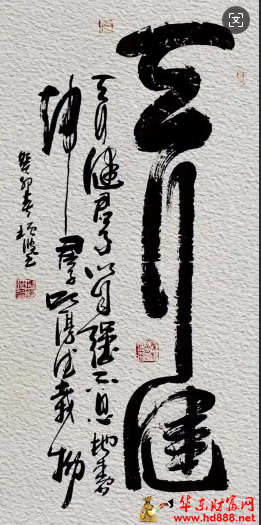 天行健
天行健君子以自強不息地勢
坤君子以厚德載物
癸卯春
华东财富网
www.hd888.net